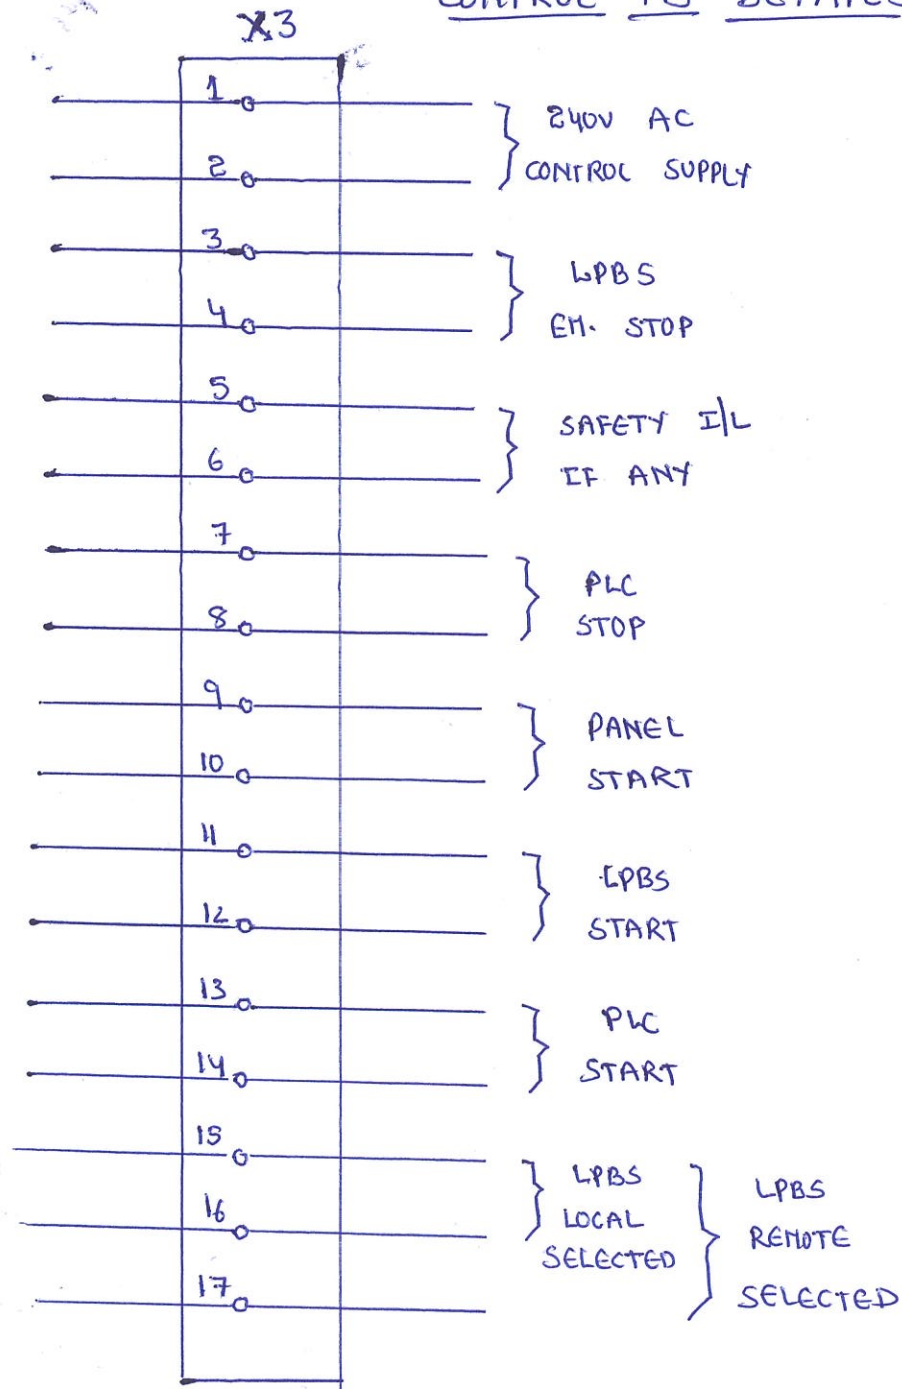 CONTROL TB DETAILS
X3
1
240V AC
2
CONTROL SUPPLY
3
LPBS
4
EM. STOP
5
SAFETY I/L
6
IF ANY
7
PLC
8
STOP
9
PANEL
10
START
11
LPBS
12
START
13
PLC
14
START
15
LPBS
LOCAL
SELECTED
16
LPBS
REMOTE
SELECTED
17